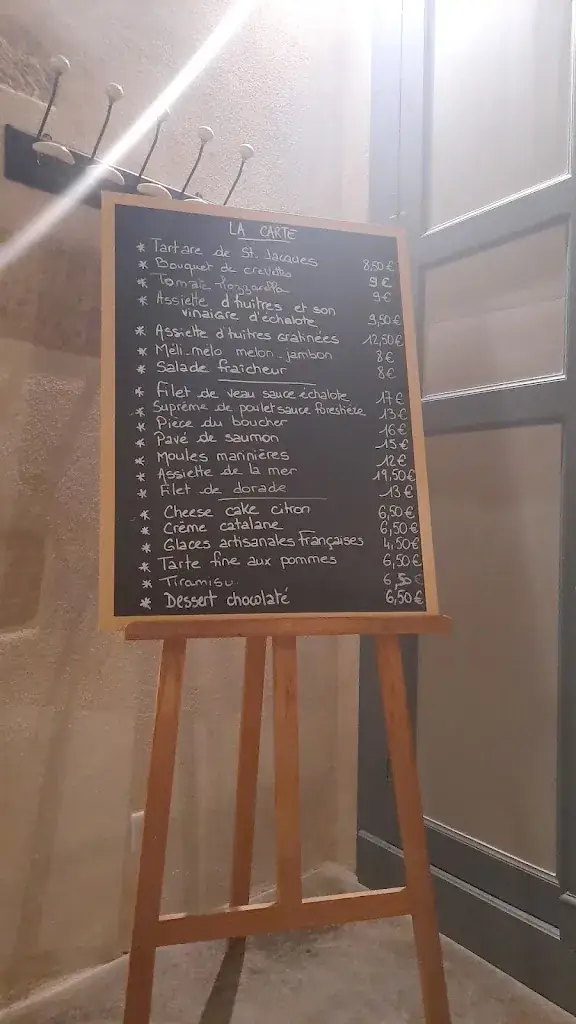 LA CARTE
* Tartare de St. Jacques 8,50€
* Bouquet de crevettes 9€
* Tomate Mozzarella 9€
* Assiette d'huitres et son
vinaigre d'échalote 9,50€
* Assiette d'huitres gratinées 12,50€
* Méli-mélo melon-jambon 8€
* Salade fraîcheur 8€
* Filet de veau sauce échalote 17€
* Suprême de poulet sauce forestière 13€
* Pièce du boucher 16€
* Pavé de saumon 15€
* Moules marinières 12€
* Assiette de la mer 19,50€
* Filet de dorade 13€
* Cheese cake citron 6,50€
* Crème catalane 6,50€
* Glaces artisanales Françaises 4,50€
* Tarte fine aux pommes 6,50€
* Tiramisu 6,50€
* Dessert chocolaté 6,50€